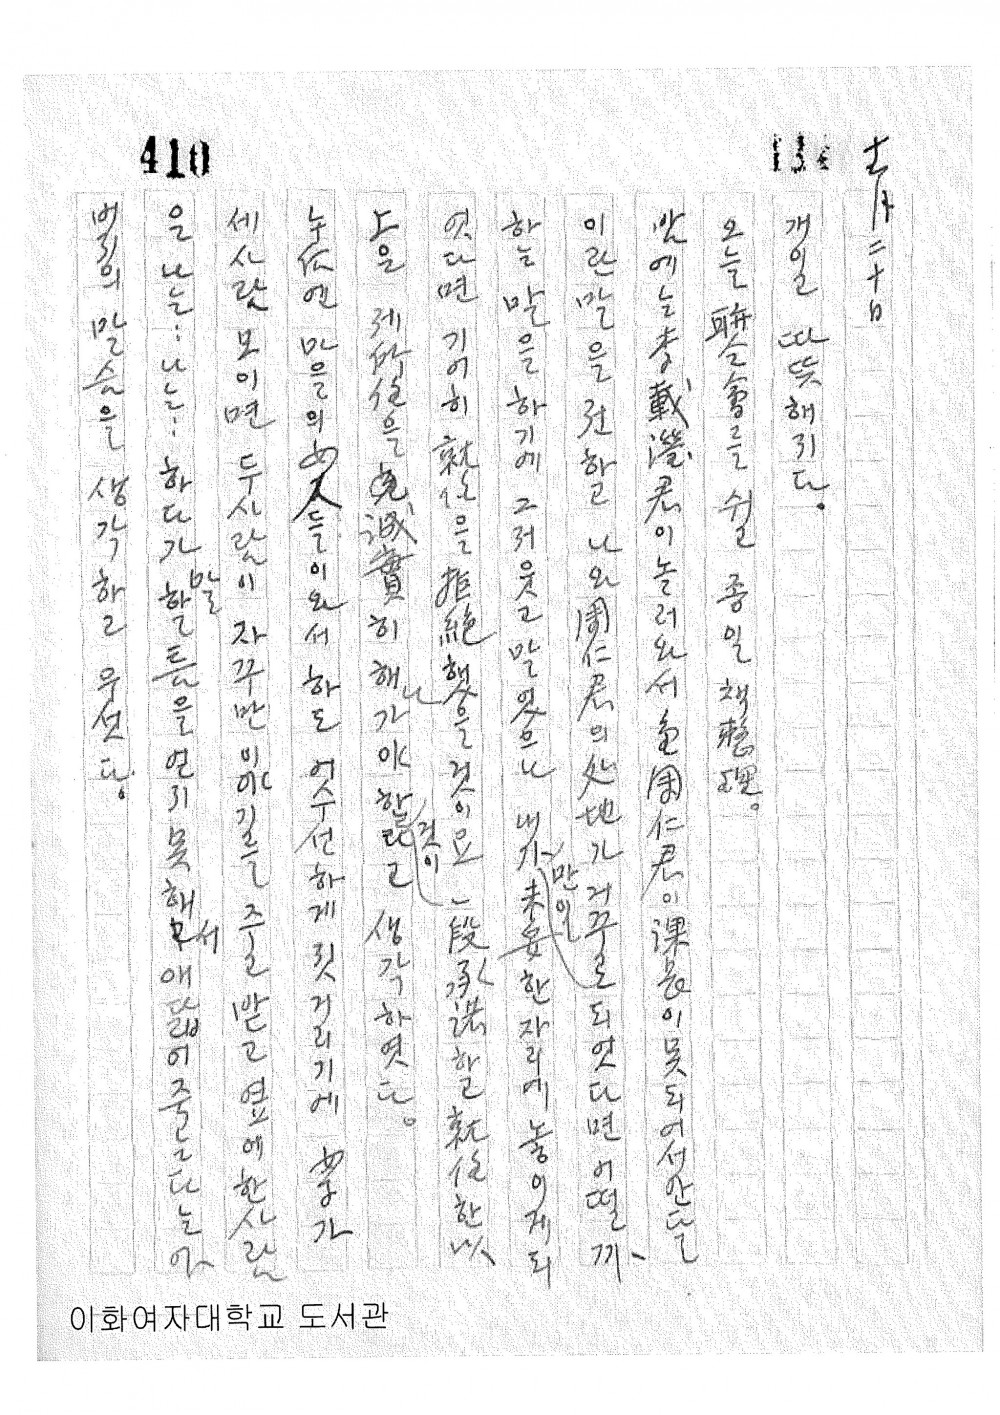 410
134
十一月二十日
개일 따뜻해지다。
오늘 聯合會를 쉴 종일 책整理。
밤에는 李載瀅君이 놀러와서 金周仁君이 課長이 못되어서 안달
이란 말을 전하고 나와 周仁君의 処地가 거꾸로 되엿다면 어떨까、
하는 말을 하기에 그저 웃고 말엇으나 내가 만일 未安한 자리에 놓이게 되
엿다면 기어히 就任을 拒絶햇을 것이요 一段 承諾하고 就任한 以
上은 제 所任을 誠實히 해나가야 할 것이라고 생각하엿다。
눈 마을의 女人들이 와서 하도 엇수선하게 짓거리기에 妻가
세 사람 모이면 두 사람이 자꾸만 이야기를 주고 받고 옆에 한 사람
은 나는…나는…하다가 말할 틈을 얻지 못해서 애닲어 죽는다는 어
벌의 말슴을 생각하고 우섯다。
이화여자대학교 도서관